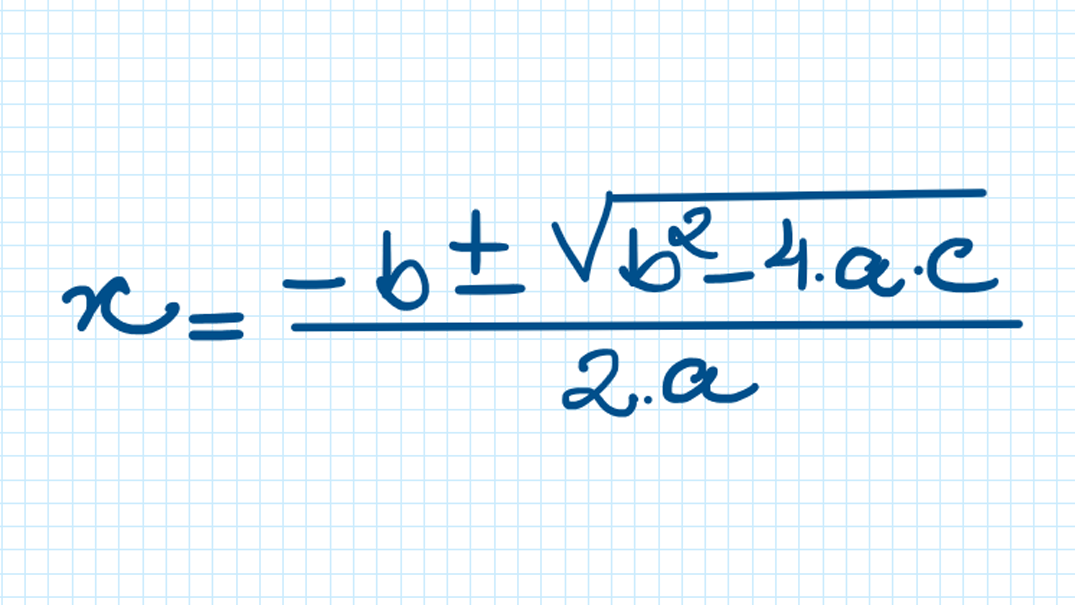 x = (-b ± √(b² - 4.a.c)) / (2.a)